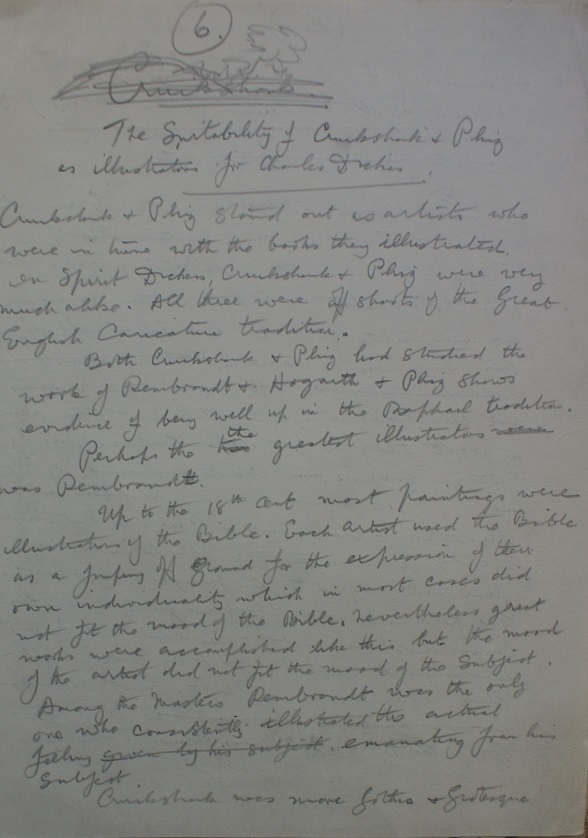 6.
Cruikshank
The Suitability of Cruikshank & Phiz
as illustrators for Charles Dickens
Cruikshank & Phiz stand out as artists who
were in tune with the books they illustrated.
In Spirit Dickens, Cruikshank & Phiz were very
much alike. All three were off shoots of the Great
English Caricature tradition.
Both Cruikshank & Phiz had studied the
work of Rembrandt & Hogarth & Phiz shows
evidence of being well up in the Raphael tradition.
Perhaps the the greatest illustrators were
was Rembrandt.
Up to the 18th cent most paintings were
illustrations of the Bible. Each artist used the Bible
as a jumping off ground for the expression of their
own individuality which in most cases did
not fit the mood of the Bible. Nevertheless great
works were accomplished like this but the mood
of the artist did not fit the mood of the Subject.
Among the Masters Rembrandt was the only
one who consistently illustrated the actual
feeling given by his subject. emanating from his
Subject
Cruikshank was more Gothic & Grotesque